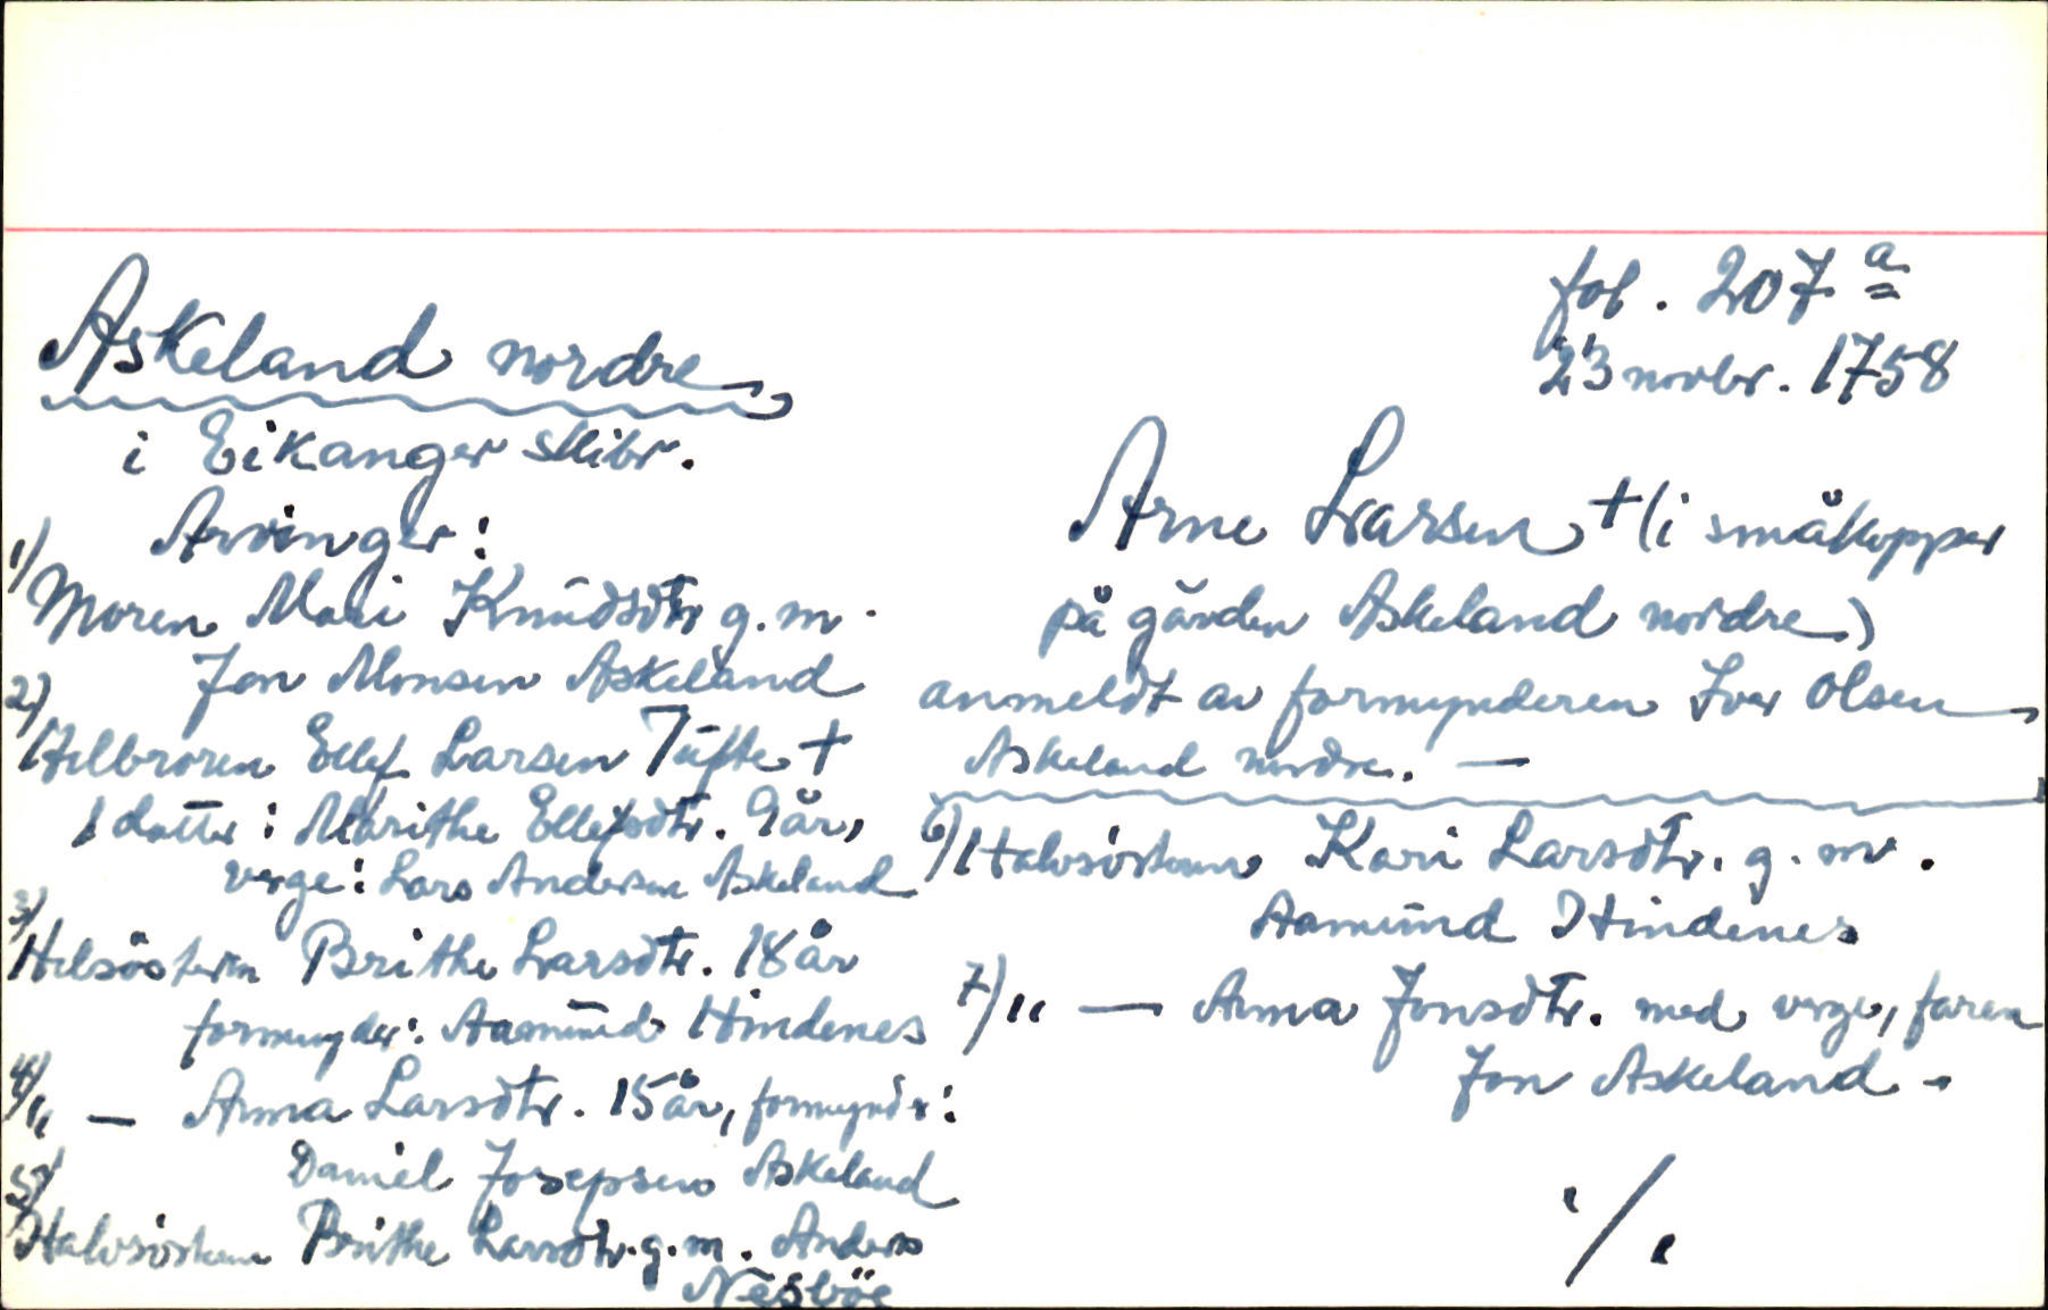 fol. 207 a
23 novbr. 1758
Askeland nordre
i Eikanger skibr.
Arne Larsen + (i småkopper
på gården Askeland nordre)
anmeldt av formynderen Iver Olsen
Askeland nordre. —
Arvinger:
1) Moren Mari Knudsdtr g. m.
Jon Monsen Askeland
2) Helbroren Ellef Larsen Tufte +
1 datter: Marithe Ellefsdtr. 9 år,
verge: Lars Andersen Askeland
3) Helsösteren Brithe Larsdtr. 18 år
formynder: Aamund Hindenes
4) " — Anna Larsdtr. 15 år, formyndr:
Daniel Josepsen Askeland
5) Halvsösteren Brithe Larsdtr. g. m. Anders
Nesböe
6) Halvsösteren Kari Larsdtr. g. m.
Aamund Hindenes
7) " — Anna Jonsdtr. med verge, faren
Jon Askeland -
./.